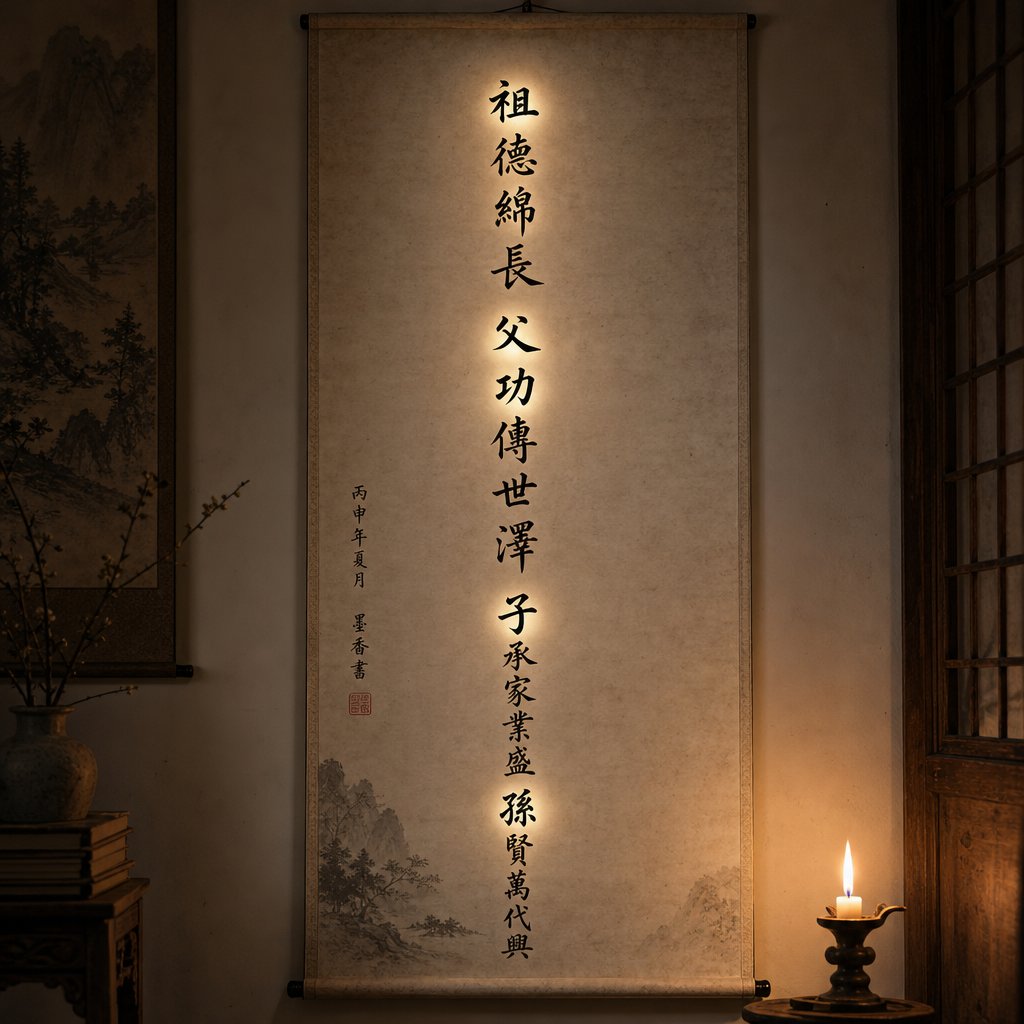 祖德綿長 父功傳世澤 子承家業盛 孫賢萬代興
丙申年夏月 墨香書